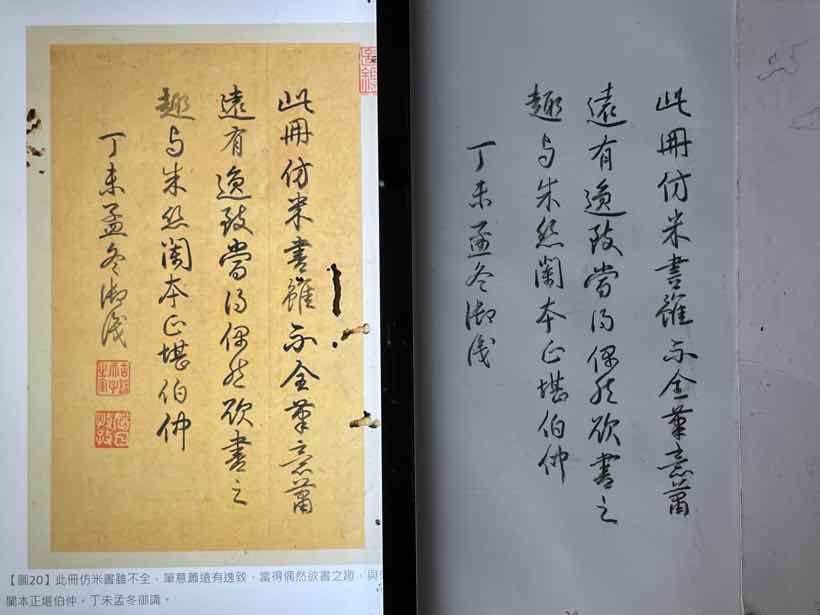 此冊仿米書雖不全筆意蕭
遠有逸致當得偶然欲書之
趣与朱絲闌本正堪伯仲
丁未孟冬御識
【圖20】此冊仿米書雖不全，筆意蕭遠有逸致，當得偶然欲書之趣，與
闌本正堪伯仲，丁未孟冬御識。
此冊仿米書雖不全筆意蕭
遠有逸致當得偶然欲書之
趣与朱絲闌本正堪伯仲
丁未孟冬御識